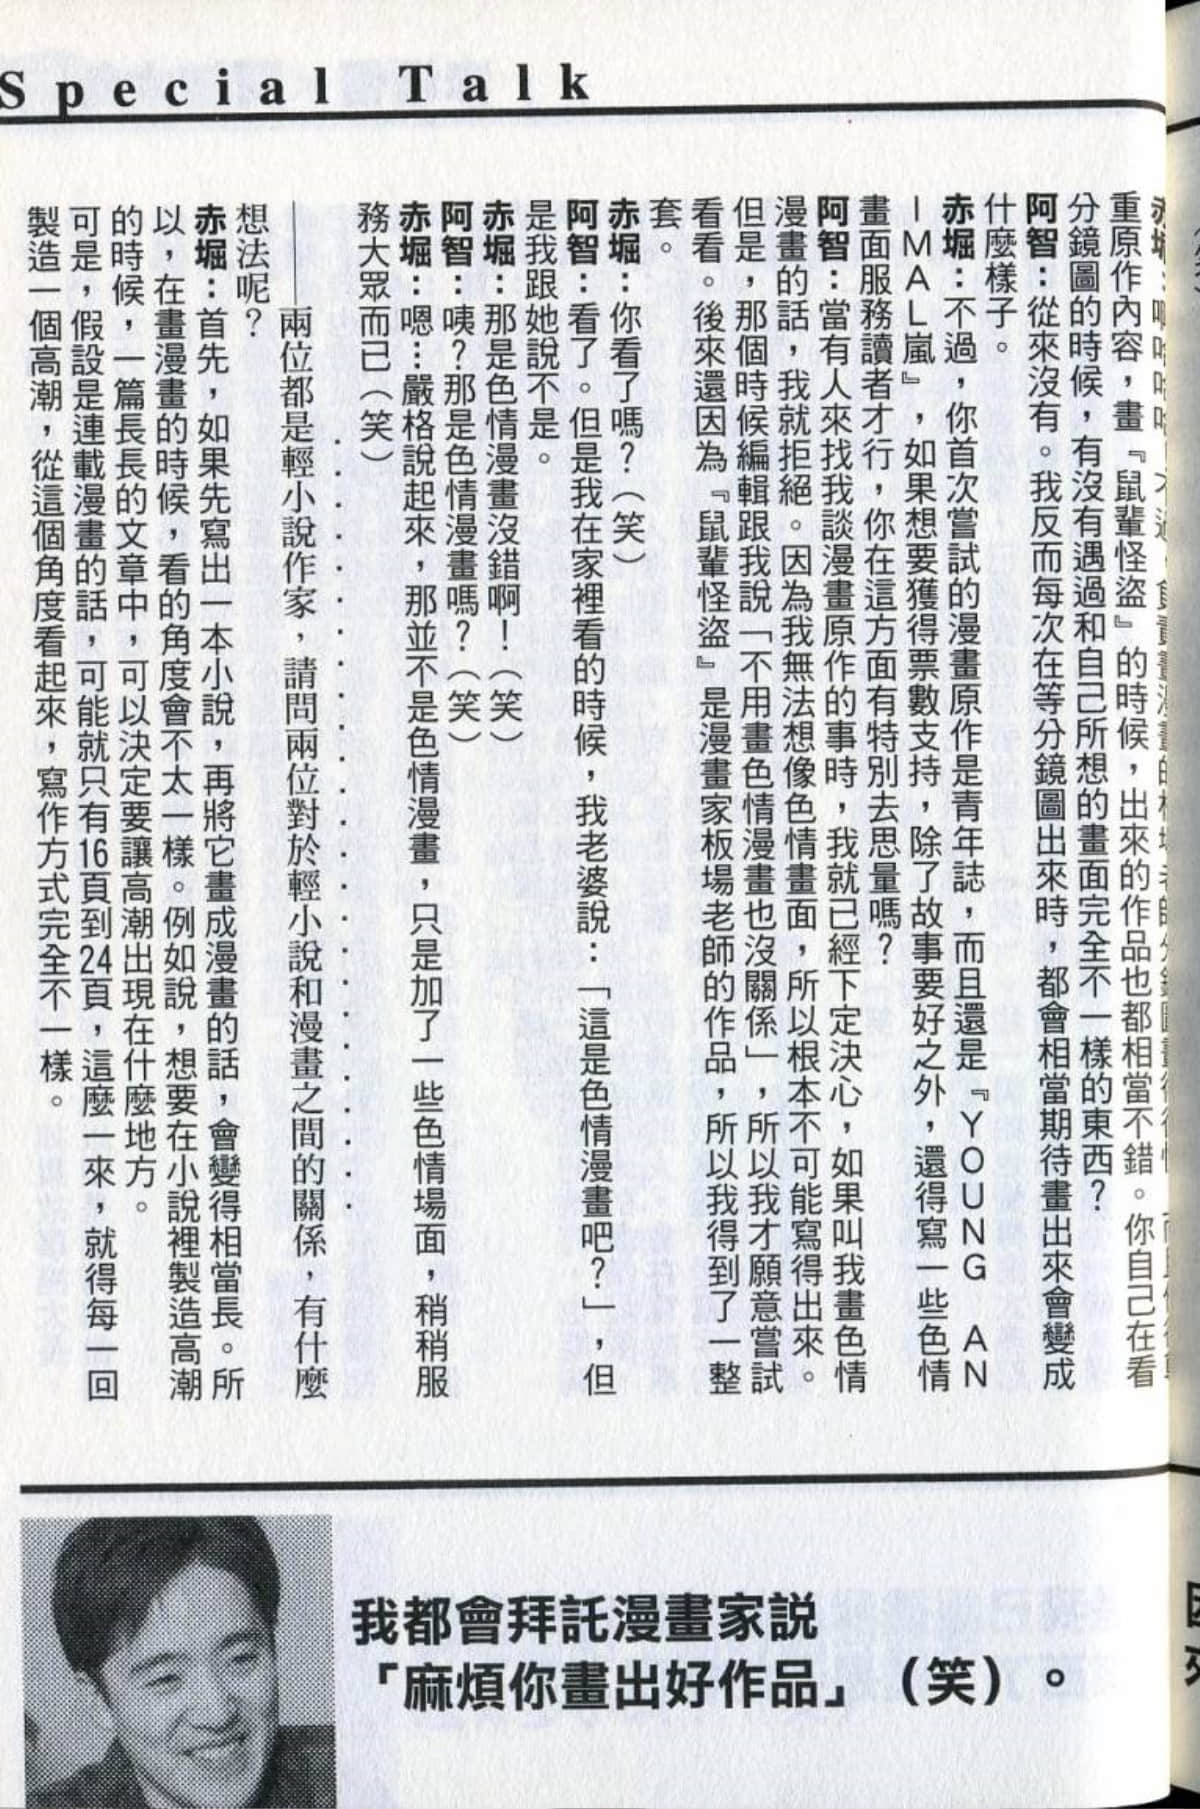 Special Talk
赤堀：
重原作內容，畫『鼠輩怪盜』的時候，出來的作品也都相當不錯。你自己在看
分鏡圖的時候，有沒有遇過和自己所想的畫面完全不一樣的東西？
阿智：從來沒有。我反而每次在等分鏡圖出來時，都會相當期待畫出來會變成
什麼樣子。
赤堀：不過，你首次嘗試的漫畫原作是青年誌，而且還是『YOUNG AN
IMAL嵐』，如果想要獲得票數支持，除了故事要好之外，還得寫一些色情
畫面服務讀者才行，你在這方面有特別去思量嗎？
阿智：當有人來找我談漫畫原作的事時，我就已經下定決心，如果叫我畫色情
漫畫的話，我就拒絕。因為我無法想像色情畫面，所以根本不可能寫得出來。
但是，那個時候編輯跟我說「不用畫色情漫畫也沒關係」，所以我才願意嘗試
看看。後來還因為『鼠輩怪盜』是漫畫家板場老師的作品，所以我得到了一整
套。
赤堀：你看了嗎？（笑）
阿智：看了。但是我在家裡看的時候，我老婆說：「這是色情漫畫吧？」，但
是我跟她說不是。
赤堀：那是色情漫畫沒錯啊！（笑）
阿智：咦？那是色情漫畫嗎？（笑）
赤堀：嗯…嚴格說起來，那並不是色情漫畫，只是加了一些色情場面，稍稍服
務大眾而已（笑）
——兩位都是輕小說作家，請問兩位對於輕小說和漫畫之間的關係，有什麼
想法呢？
赤堀：首先，如果先寫出一本小說，再將它畫成漫畫的話，會變得相當長。所
以，在畫漫畫的時候，看的角度會不太一樣。例如說，想要在小說裡製造高潮
的時候，一篇長長的文章中，可以決定要讓高潮出現在什麼地方。
可是，假設是連載漫畫的話，可能就只有16頁到24頁，這麼一來，就得每一回
製造一個高潮，從這個角度看起來，寫作方式完全不一樣。
我都會拜託漫畫家説
「麻煩你畫出好作品」（笑）。